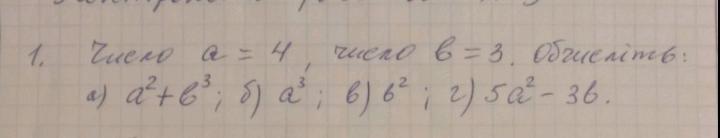 1. Число a = 4, число b = 3. Обчисліть:
а) a² + b³; б) a³; в) b²; г) 5a² - 3b.